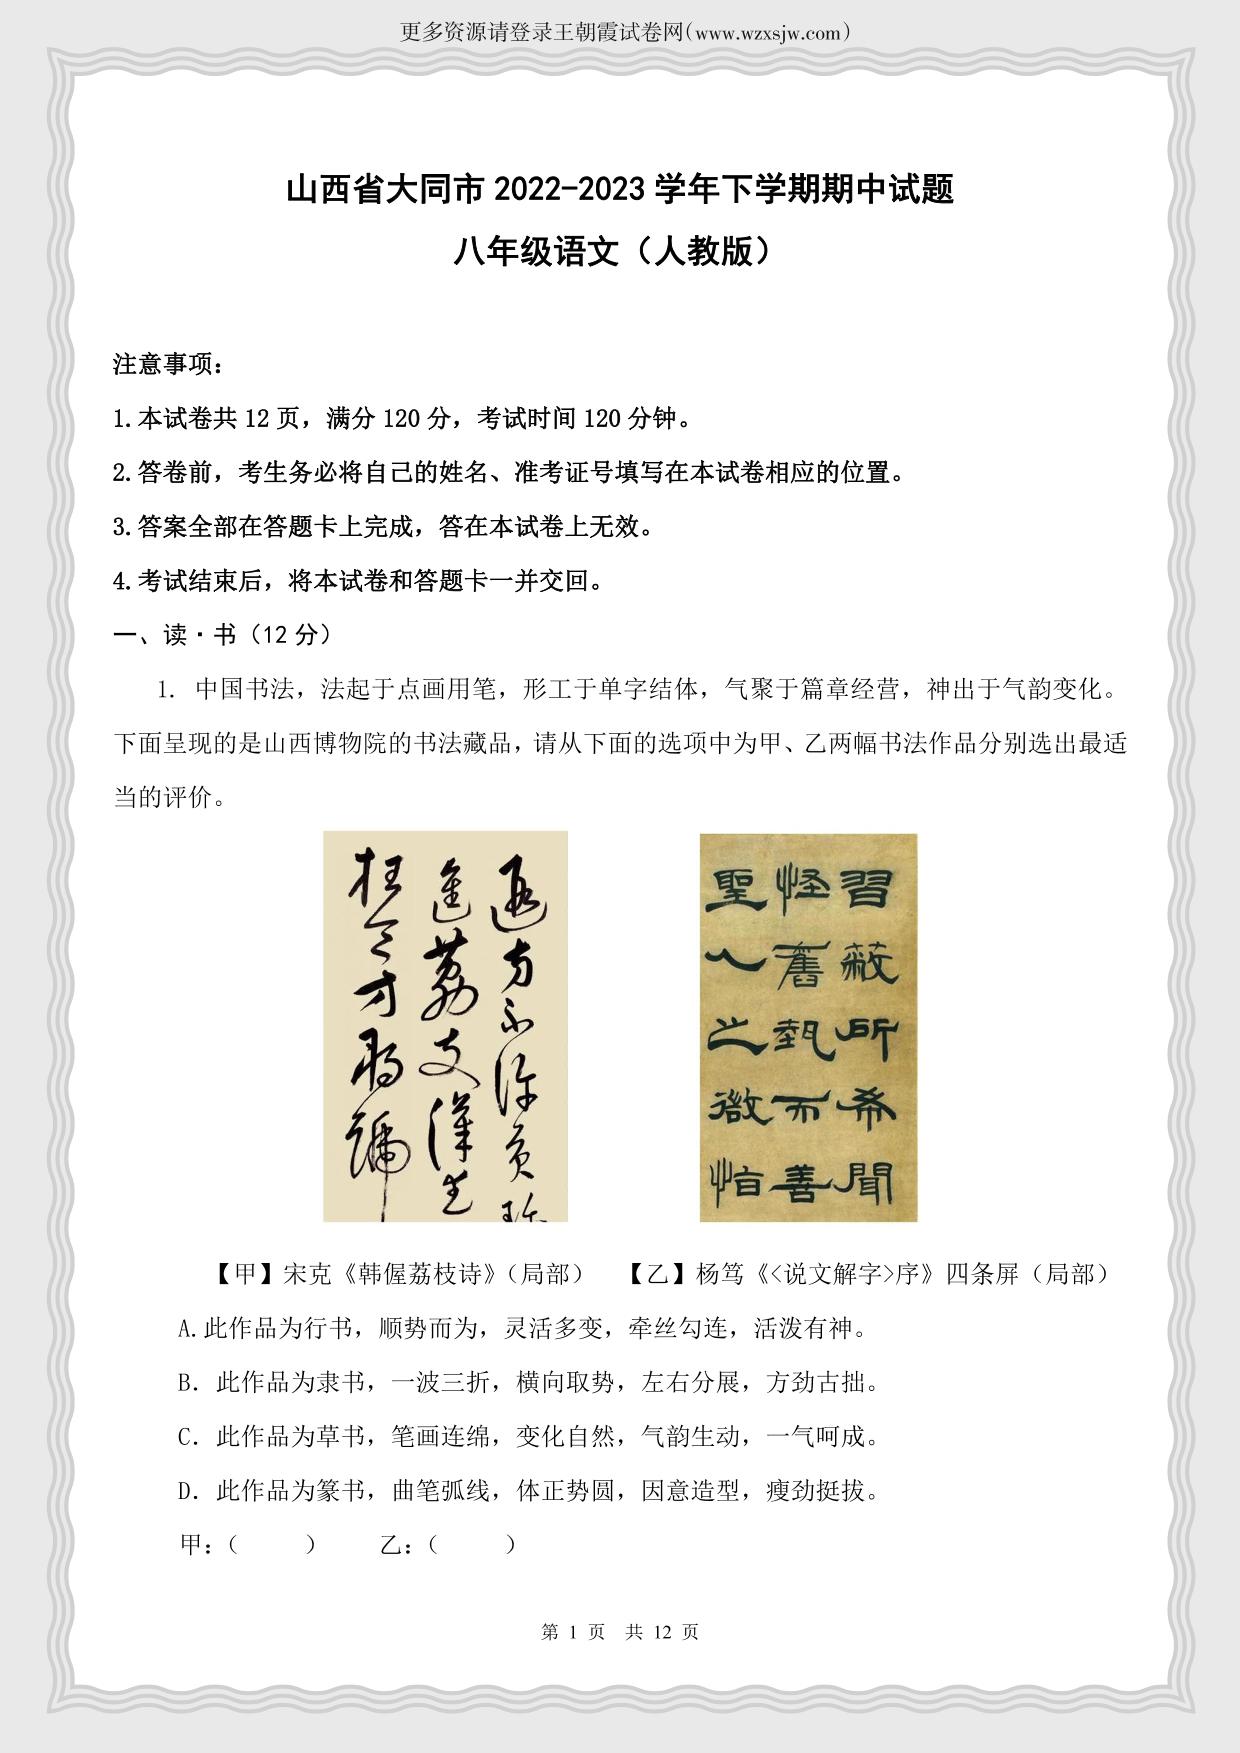 更多资源请登录王朝霞试卷网(www.wzxsjw.com)
山西省大同市 2022-2023 学年下学期期中试题
八年级语文（人教版）
注意事项：
1.本试卷共 12 页，满分 120 分，考试时间 120 分钟。
2.答卷前，考生务必将自己的姓名、准考证号填写在本试卷相应的位置。
3.答案全部在答题卡上完成，答在本试卷上无效。
4.考试结束后，将本试卷和答题卡一并交回。
一、读·书（12 分）
1. 中国书法，法起于点画用笔，形工于单字结体，气聚于篇章经营，神出于气韵变化。
下面呈现的是山西博物院的书法藏品，请从下面的选项中为甲、乙两幅书法作品分别选出最适
当的评价。
習蔽所希聞
怪舊埶而善
聖人之微恉
【甲】宋克《韩偓荔枝诗》（局部） 【乙】杨笃《<说文解字>序》四条屏（局部）
A.此作品为行书，顺势而为，灵活多变，牵丝勾连，活泼有神。
B. 此作品为隶书，一波三折，横向取势，左右分展，方劲古拙。
C. 此作品为草书，笔画连绵，变化自然，气韵生动，一气呵成。
D. 此作品为篆书，曲笔弧线，体正势圆，因意造型，瘦劲挺拔。
甲：（ ） 乙：（ ）
第 1 页 共 12 页